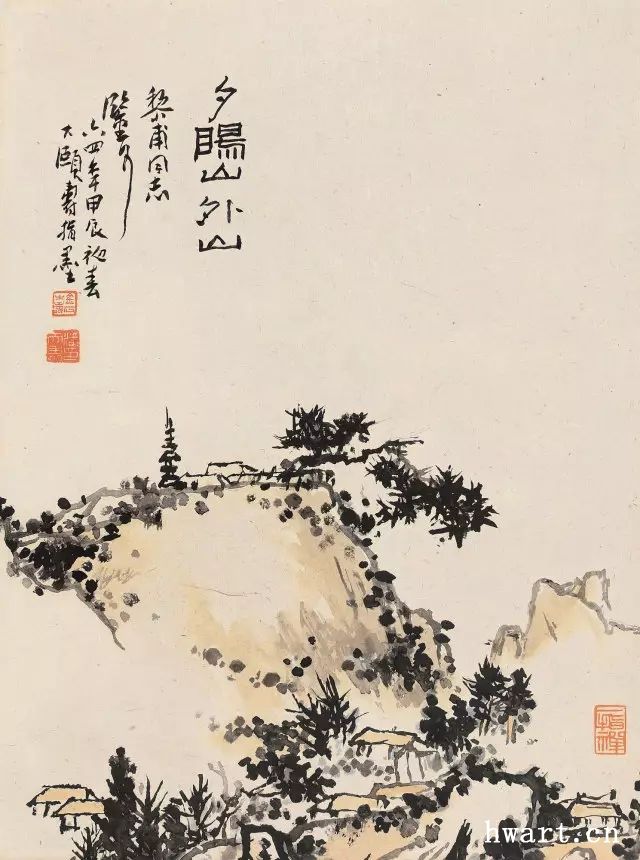 夕陽山外山
黎甫同志
鑒
六四年甲辰初春
大頤壽指墨
一指禪
hwart.cn